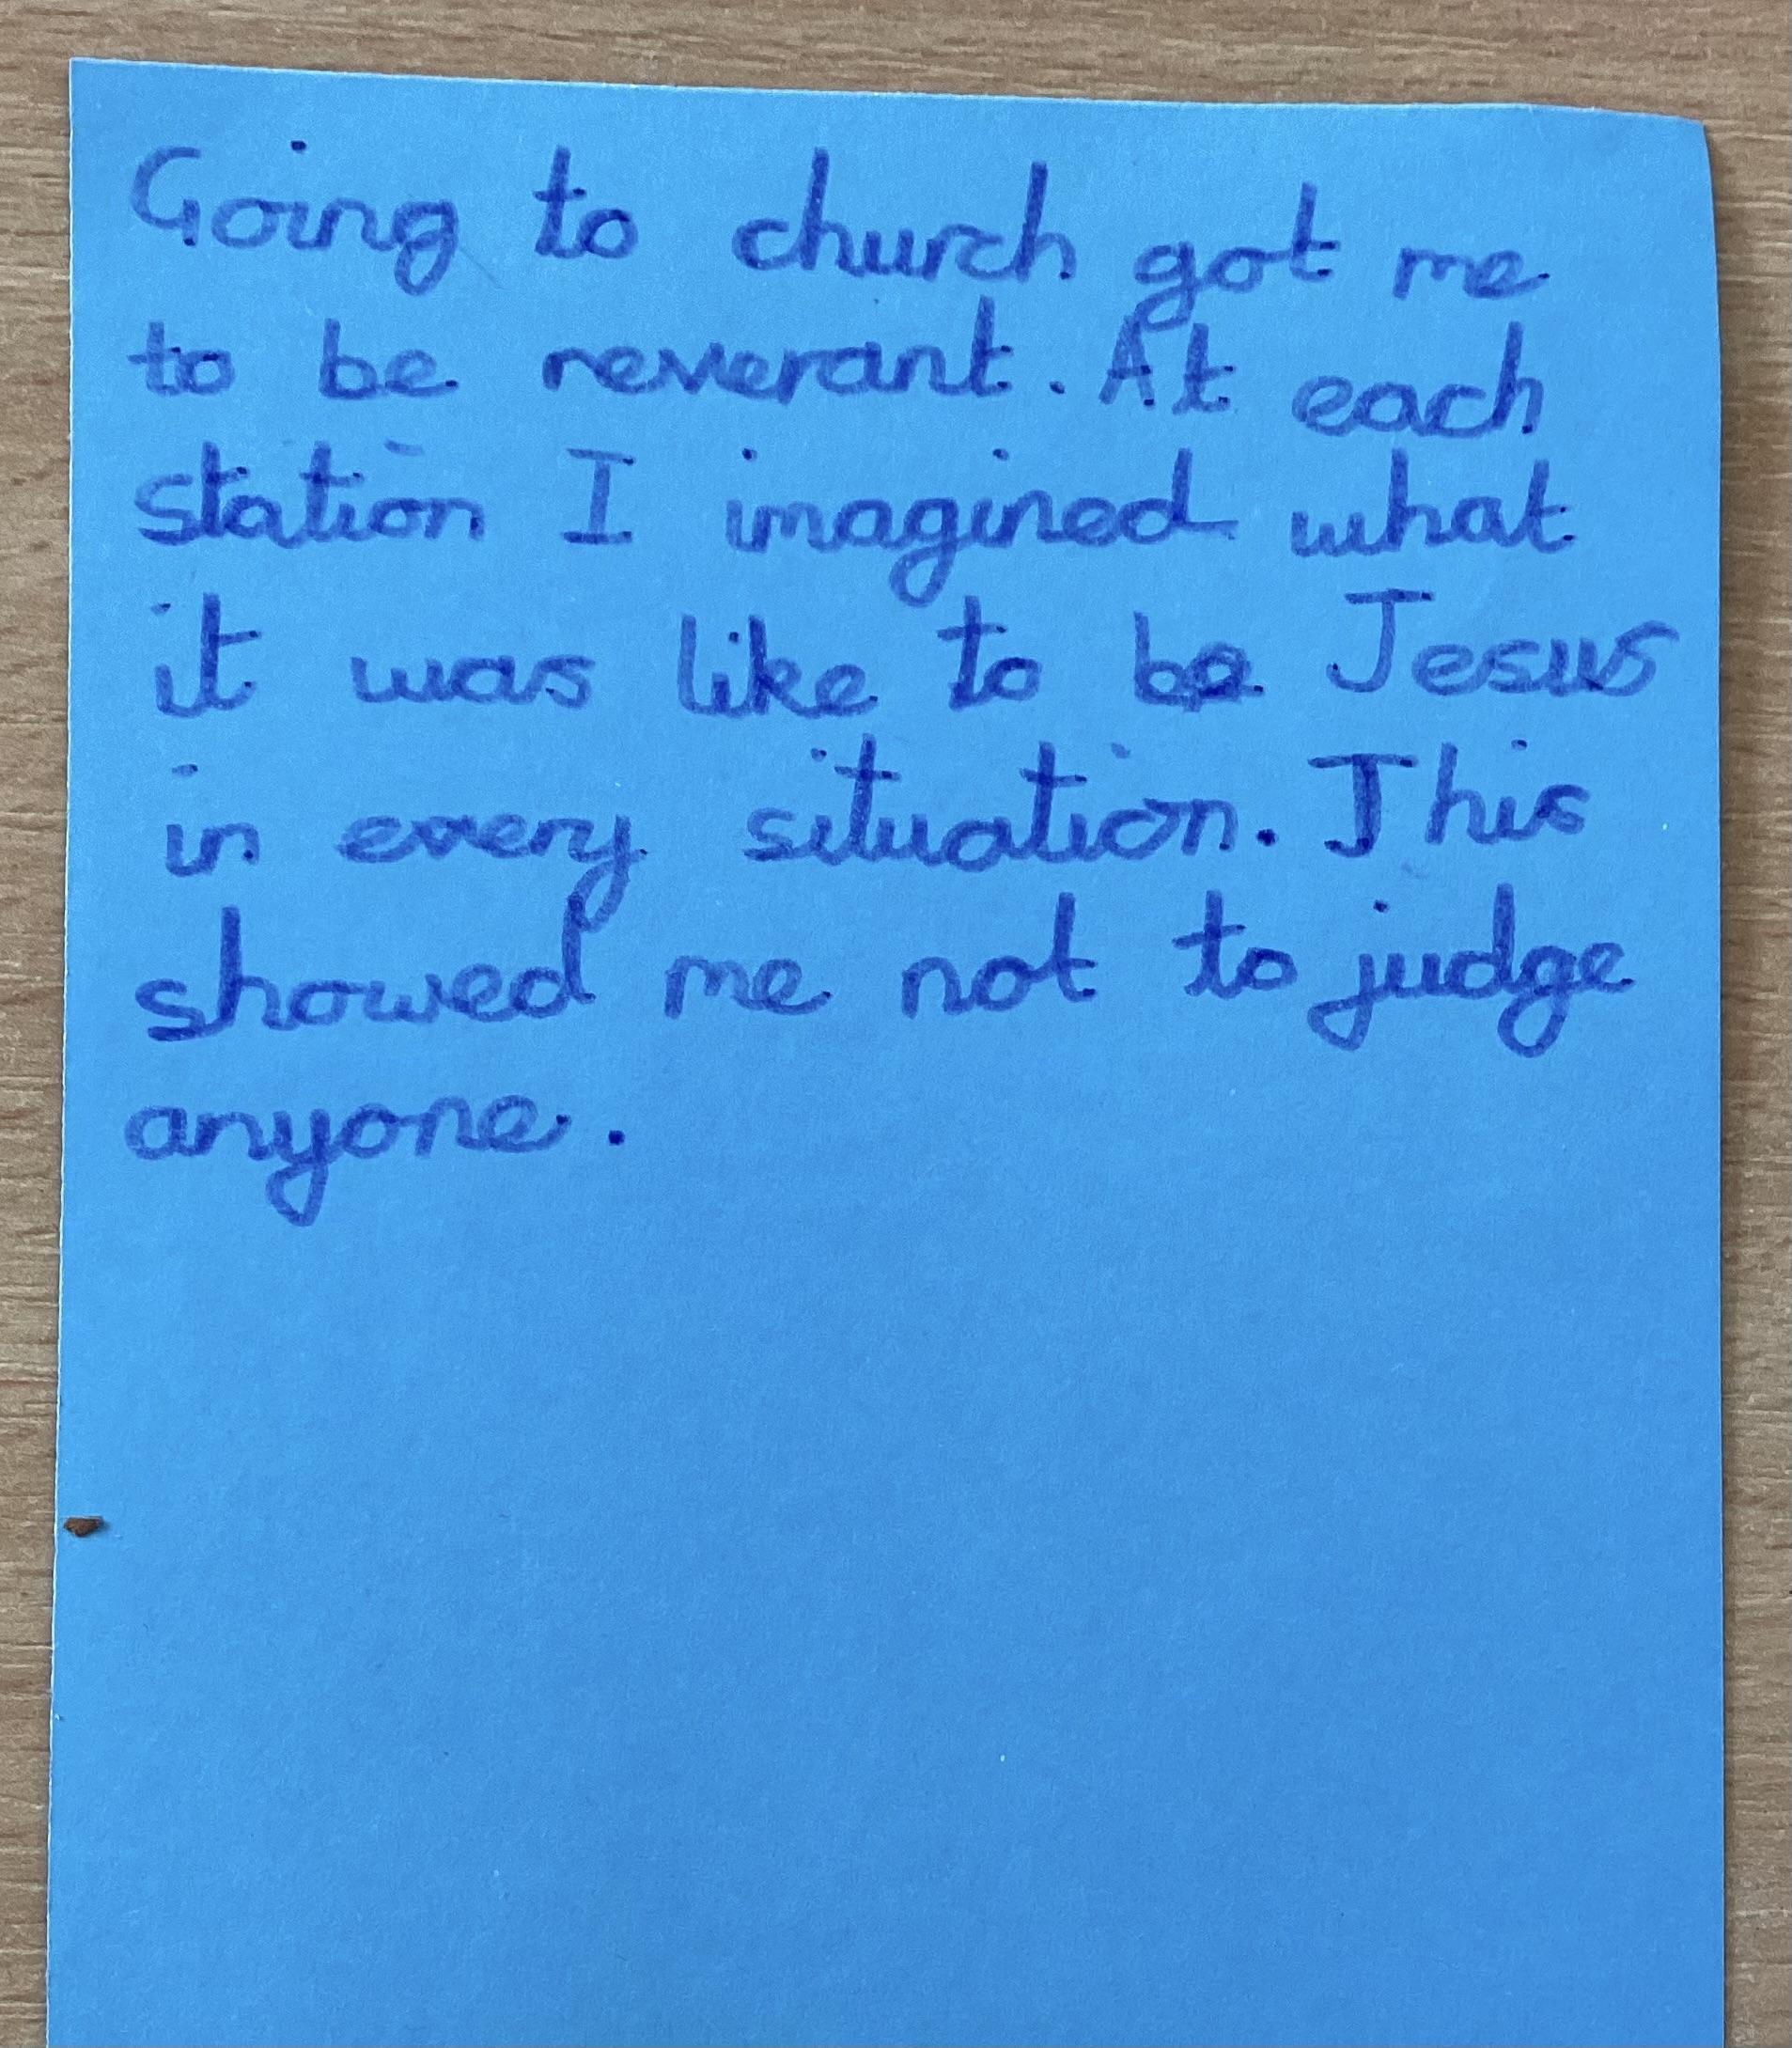 Going to church got me
to be reverant. At each
station I imagined what
it was like to be Jesus
in every situation. This
showed me not to judge
anyone.